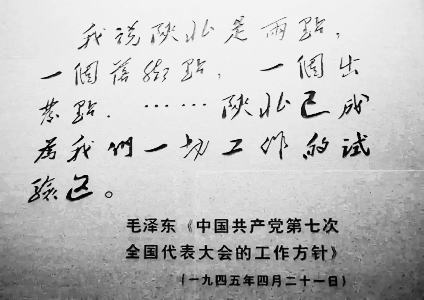 我说陕北是两點，
一個落脚點，一個出
發點．……陕北已成
為我們一切工作的试
驗区。
毛泽东《中国共产党第七次
全国代表大会的工作方针》
（一九四五年四月二十一日）